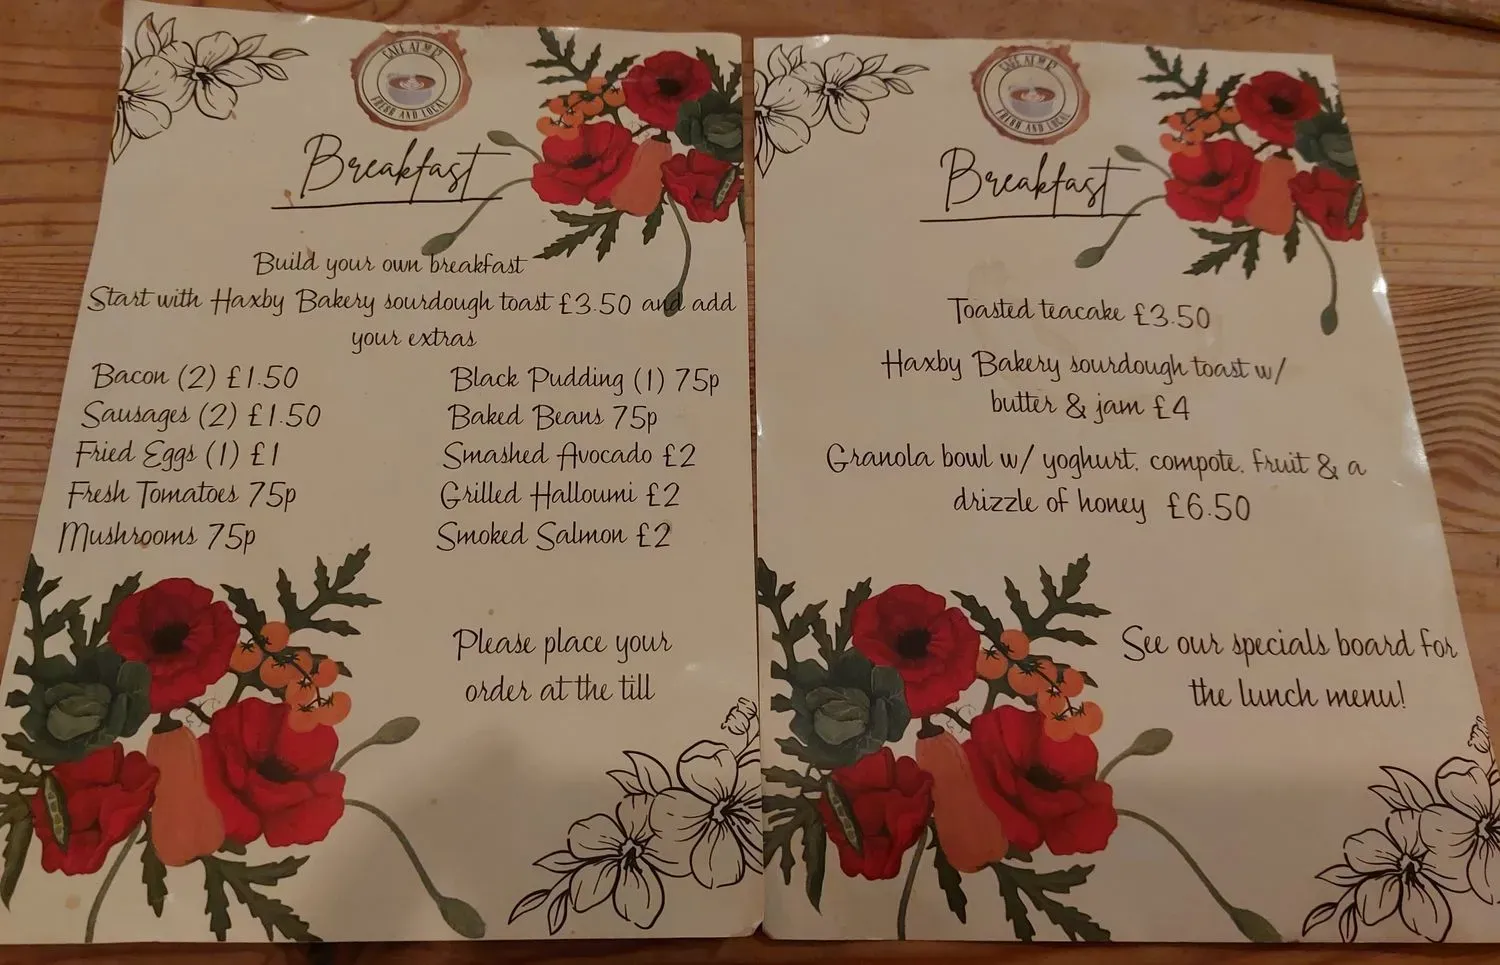 CAFE AT NO 12
FRESH AND LOCAL
Breakfast
Build your own breakfast
Start with Haxby Bakery sourdough toast £3.50 and add
your extras
Bacon (2) £1.50
Sausages (2) £1.50
Fried Eggs (1) £1
Fresh Tomatoes 75p
Mushrooms 75p
Black Pudding (1) 75p
Baked Beans 75p
Smashed Avocado £2
Grilled Halloumi £2
Smoked Salmon £2
Please place your
order at the till
FRESH AND LOCAL
Breakfast
Toasted teacake £3.50
Haxby Bakery sourdough toast w/
butter & jam £4
Granola bowl w/ yoghurt, compote, fruit & a
drizzle of honey £6.50
See our specials board for
the lunch menu!